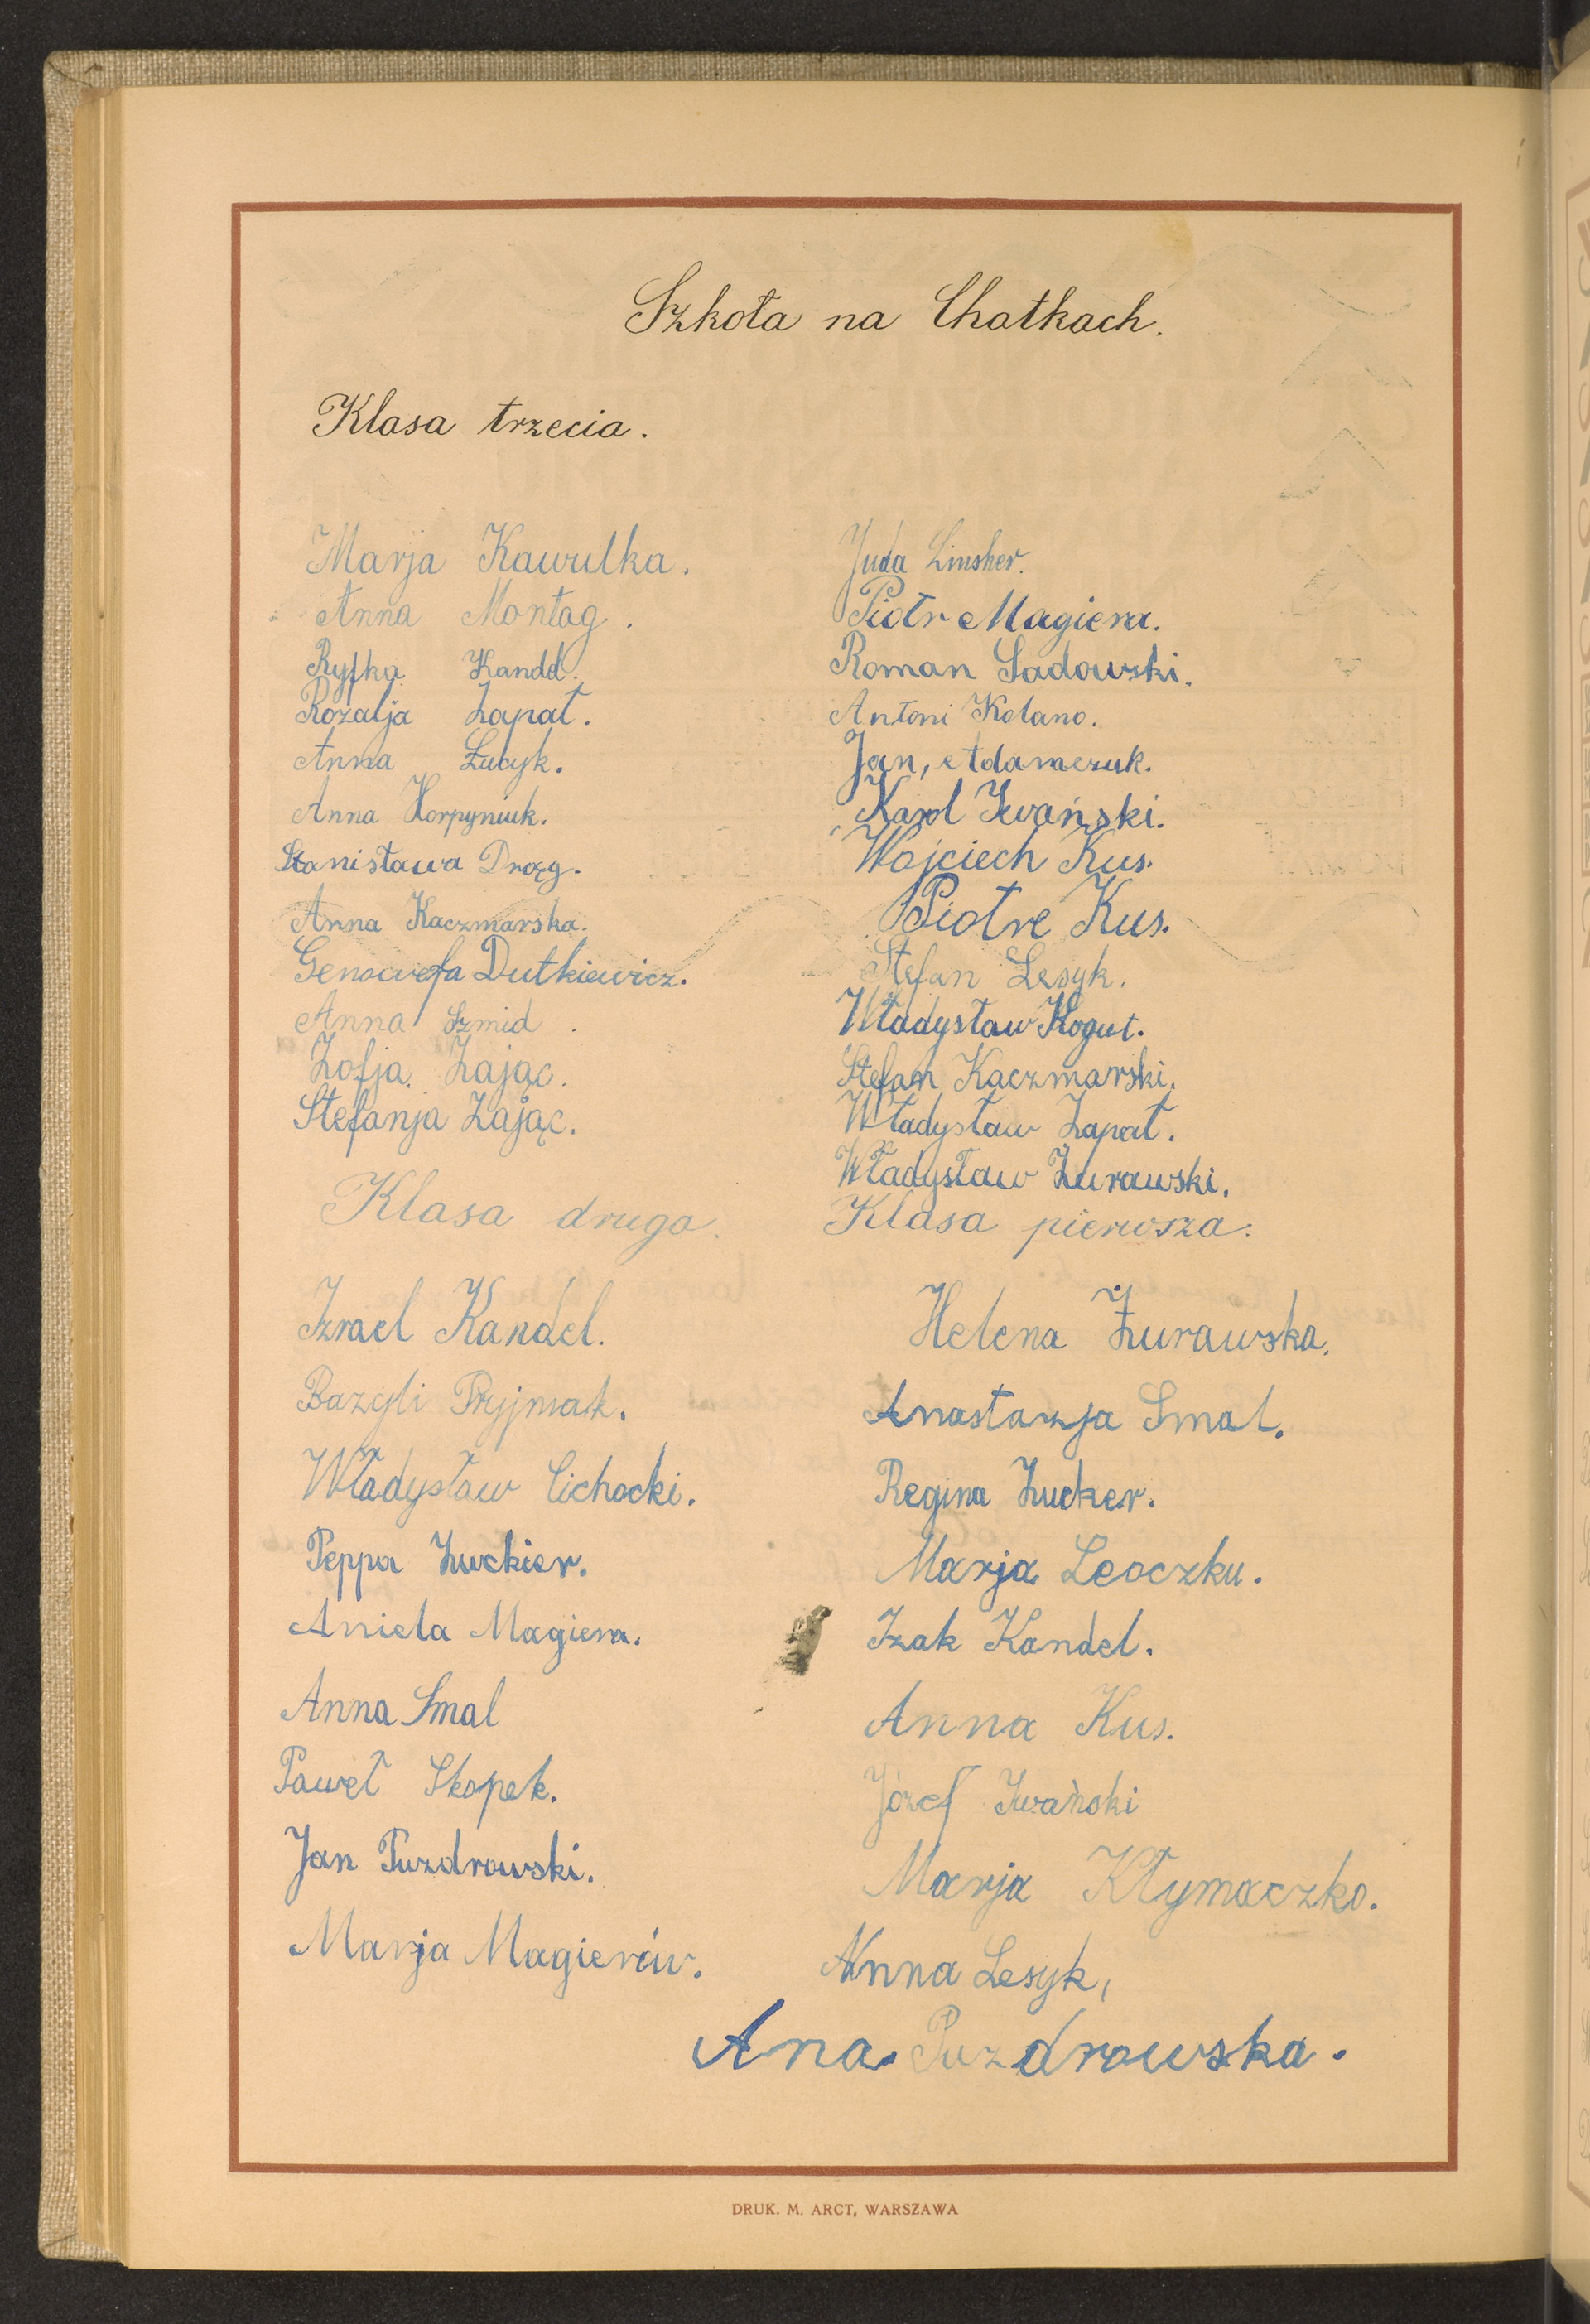 Szkoła na Chatkach.
Klasa trzecia.
Marja Kawulka.
Anna Montag.
Ryfka Kandel.
Rozalja Łapat.
Anna Łucyk.
Anna Horpyniuk.
Stanisława Drozg.
Anna Kaczmarska.
Genowefa Dutkiewicz.
Anna Szmid.
Zofja Zając.
Stefanja Zając.
Juda Linsher.
Piotr Magiera.
Roman Sadowski.
Antoni Kolano.
Jan, Adamczuk.
Karol Iwański.
Wojciech Kus.
Piotre Kus.
Stefan Lesyk.
Władysław Kogut.
Stefan Kaczmarski.
Władysław Łapat.
Władysław Żurawski.
Klasa druga.
Izrael Kandel.
Bazyli Pryjmak.
Władysław Cichocki.
Peppa Zuckier.
Aniela Magiera.
Anna Smal
Paweł Skopek.
Jan Puzdrowski.
Marja Magierów.
Klasa pierwsza.
Helena Żurawska.
Anastazja Smal.
Regina Zucker.
Marja Leoczku.
Izak Kandel.
Anna Kus.
Józef Iwański
Marja Kłymaczko.
Anna Lesyk,
Ana. Puzdrowska.
DRUK. M. ARCT, WARSZAWA